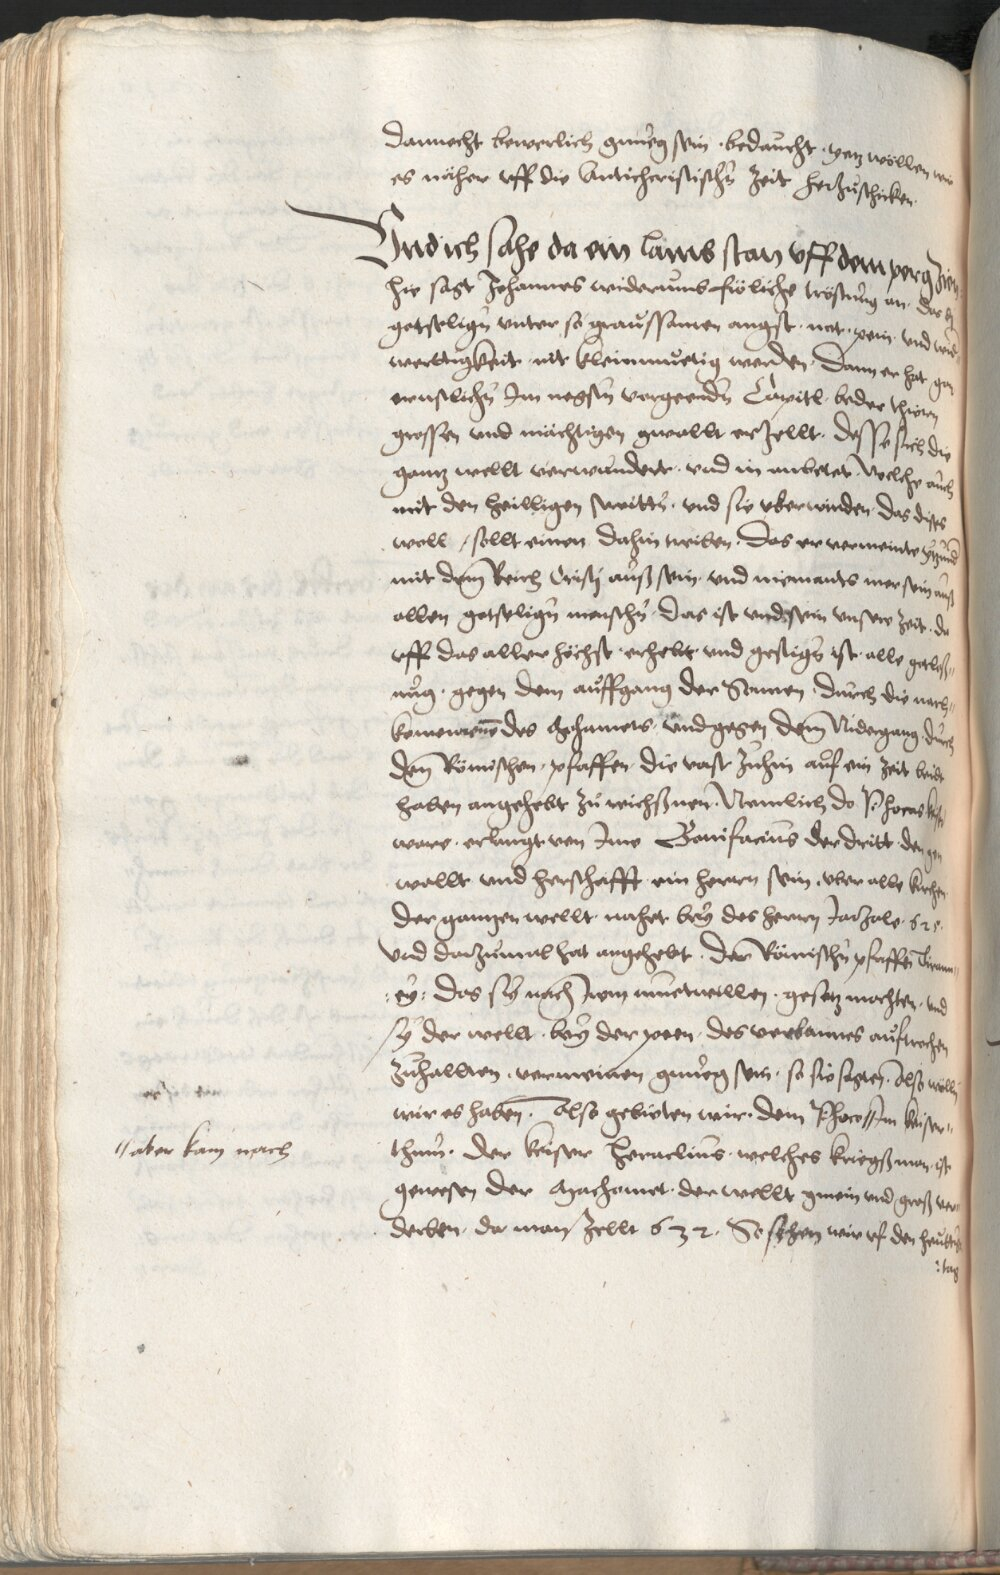 dannocht bewerlich gnůeg sein bedaucht. yetz wöllen wir
es näher uff die Antichristischn̄ Zeit herzůschicken.
Und ich sahe da ein lamb stan uff dem perg Zion
hie facht Johannes widerumb fröliche tröstung an. das
gotselign̄ unter so graussamen angst. not. pein. und wid
wertigkeit. nit kleinmuetig werden. Dann er hat gan
ernstlichn̄ Im nechstn̄ vorgeendn̄ Capitl. beder thiern
grossen und mächtigen gwallt erzellt. Desse sich die
gantz wellt verwundert. und in anbetet. Welche auch
mit den heilligen streittn̄. und sie uberwinden. Das dises
woll sollt einen dahin treiben. Das er vermeinte yetzund
mit dem Reich Cristj auß sein. und niemants mer sein auß
allen gotselign̄ menschn̄. Das ist und sein unsere zeit. da
uff das aller höchst erhebt und gestign̄ ist. alle gotloß„
nůg. gegen dem auffgang der Sonnen. durch die nach„
komenen des Machumets. und gegen dem Nidergang durch
den Römischen pfaffen. die vast zůhin auf ein zeit beid
haben angehebt zů reichßnen. Nemlich do Phocas keiser
ware. erlangt von Ime Bonifacius der dritt. den gen
wallt und herschafft. ein herrn sein. uber alle kirchen
der ganntzen wellt. nahet beÿ des herren Jarzale. 62
Und dazůmal hat angehebt. der Römischn̄ pfaffen Tirann„
:eÿ: das sÿ nach irem mutwillen. gesetz machten. und
sÿ der wellt. beÿ der peen. des verbannes auflwechen
zůhallten. vermeinen gnůeg sein. so sie sagten. Also wölln̄
wir es haben. Also gebieten wir. dem Phoco // Im keiser„
„ aber kam nach
thum. der keiser Heraclius. welches kriegßman ist
gewesen der Machomet. der wellt gmein und groß ver„
derben. da man zellt 632. So sehen wir uf den heuttign̄
:tag